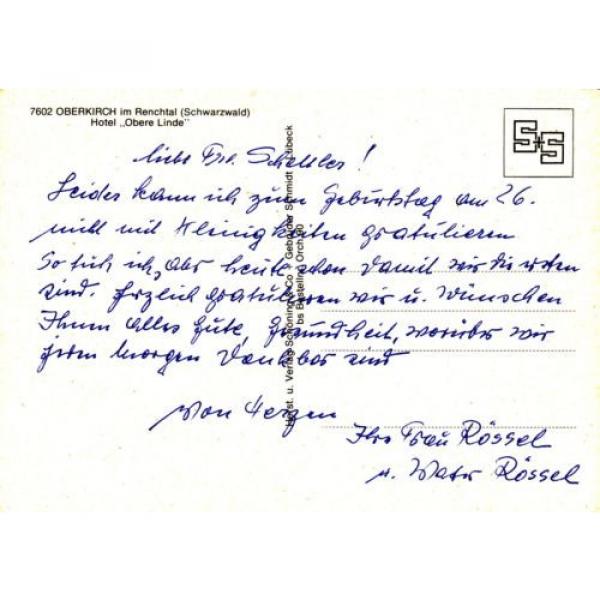 7602 OBERKIRCH im Renchtal (Schwarzwald)
Hotel „Obere Linde"
S+S
Liebe Frl.
Leider kann ich zum Geburtstag am 26.
nicht mit Kleinigkeiten gratulieren
So tuh ich aber heute schon damit wir die ersten
sind. Herzlich gratulieren wir u. Wünschen
Ihnen Alles Gute, Gesundheit, worüber wir
jeden Morgen Dankbar sind
Von Herzen
Ihre Frau Rössel
u. Rössel
Herst. u. Verlag Schöning & Co + Gebrüder Schmidt Lübeck
bs Bestellnr. Orch